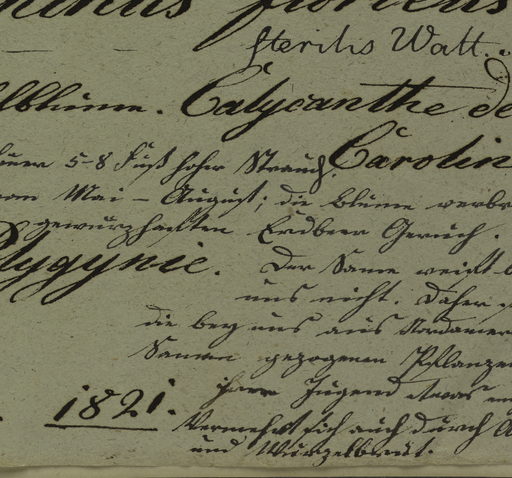 floridus
sterilis Walt.
blume. Calycanthe de
5-8 Fuß hoher Strauch, Carolin
Mai – August; die Blume verbr
gewürzhaften Erdbeer Geruch.
lygynie. Der Same reift b
uns nicht. Daher
die bey uns aus Nordamer
Samen gezogenen Pflanzen
ihrer Jugend etwas
1821. Vermehrt sich auch durch
und Wurzelbrut.